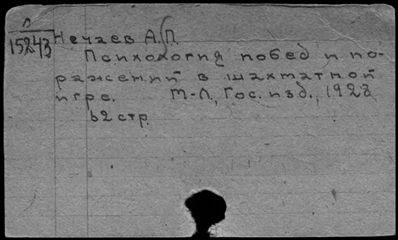 л
15243 Нечаев А.П.
Психология побед и по-
ражений в шахматной
игре. М-Л, Гос. изд., 1928
62 стр.